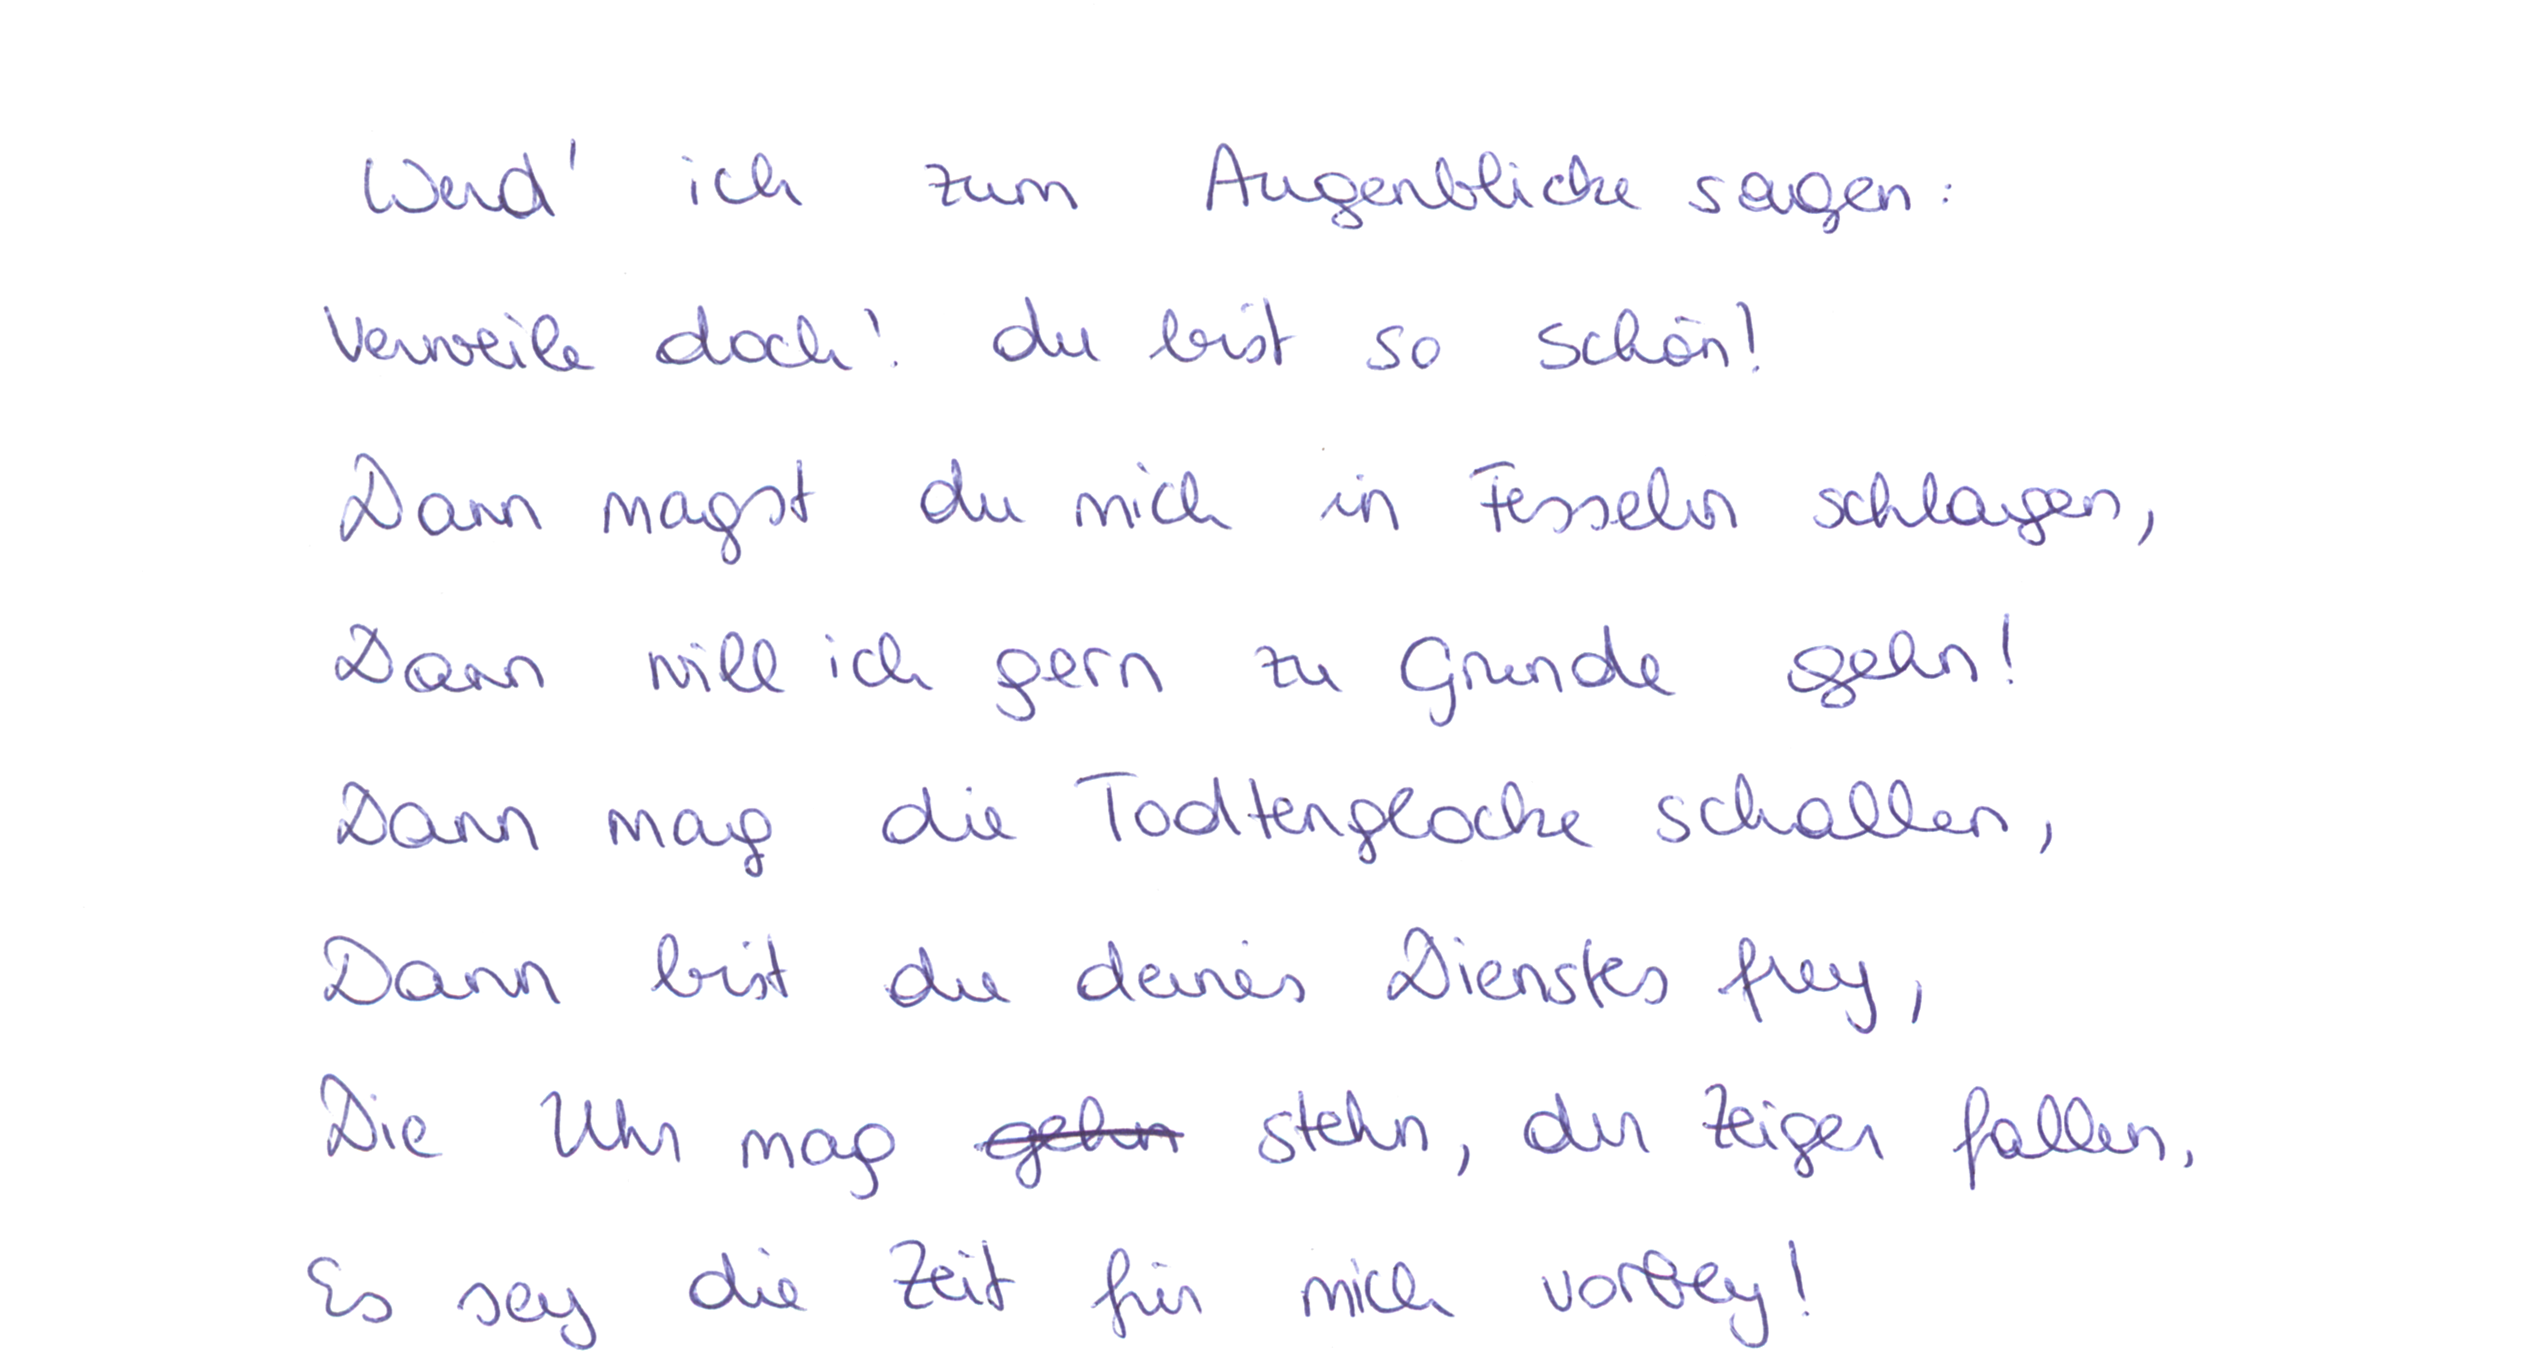 Werd' ich zum Augenblicke sagen:
Verweile doch! du bist so schön!
Dann magst du mich in Fesseln schlagen,
Dann will ich gern zu Grunde gehn!
Dann mag die Todtenglocke schallen,
Dann bist du deines Dienstes frey,
Die Uhr mag gehn stehn, der Zeiger fallen,
Es sey die Zeit für mich vorbey!